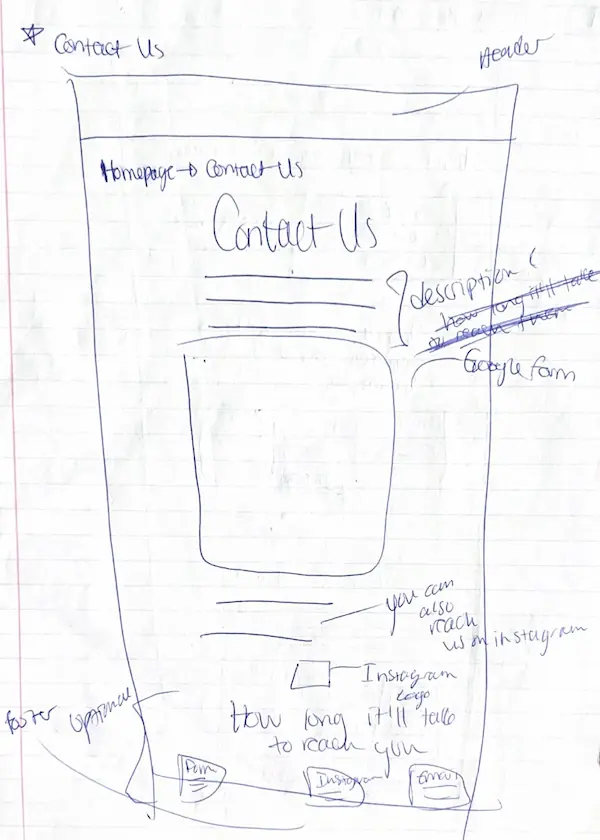 Contact Us
Header
Homepage → Contact Us
Contact Us
description (
how long it'll take
to reach them
Google form
you can
also
reach
us on instagram
Instagram
Logo
footer optional
How long it'll take
to reach you
Form
Instagram
Email